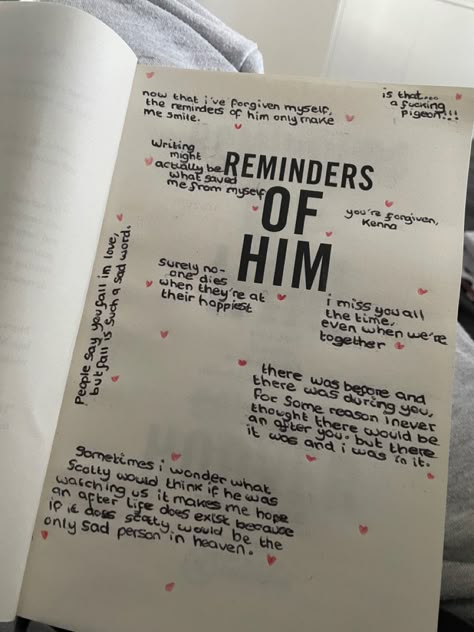 now that i've forgiven myself,
the reminders of him only make
me smile.
is that....
a fucking
pigeon!!!
Writing
might
actually be
what saved
me from myself
REMINDERS
OF
HIM
you're forgiven,
Kenna
People say you fall in love,
but fall is such a sad word.
Surely no-
one dies
when they're at
their happiest
i miss you all
the time,
even when we're
together
there was before and
there was during you,
For some reason I never
thought there would be
an after you. but there
it was and i was in it.
Sometimes i wonder what
Scotty would think if he was
watching us it makes me hope
an after life does exist because
if it does scotty would be the
only sad person in heaven.